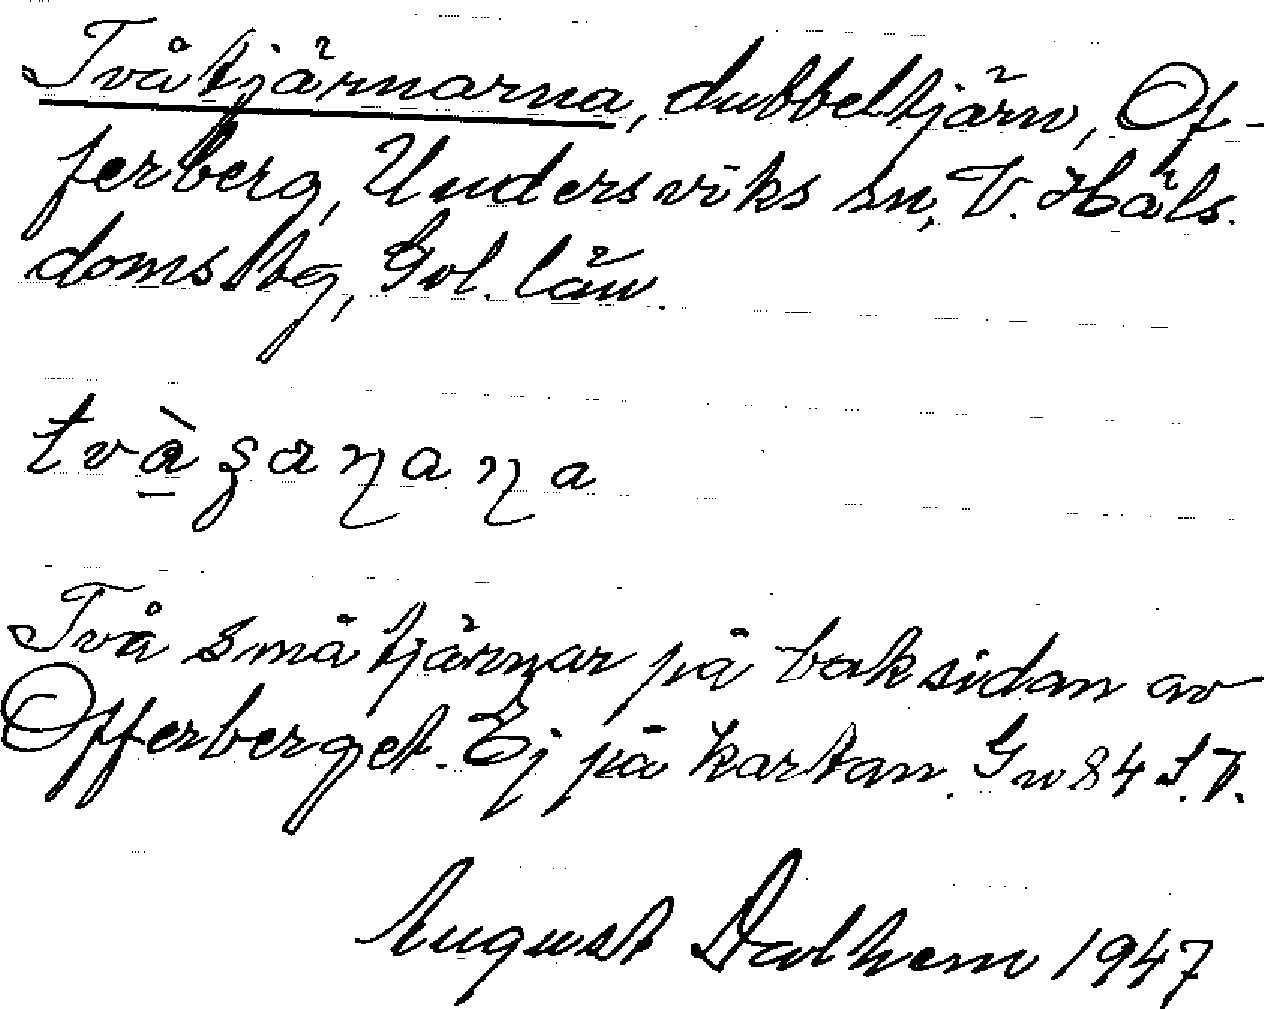 Tvåtjärnarna, dubbeltjärn, Of-
ferberg, Undersviks sn, V. Häls.
domsbg, Gvl. län.
Två små tjärnar på baksidan av
Offerberget. Ej på kartan. Gw 84 S.T.
August Dalhem 1947